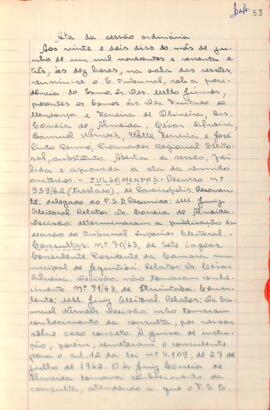 53
Ata da sessão ordinária
Aos vinte e dois dias do mês de ju-
nho de um mil novecentos e sessenta e
três, às dez horas, na sala das sessões,
reuniu-se o E. Tribunal, sob a presi-
dência do Exmo. Sr. Des. Mello Júnior,
presentes os Exmos. Srs. Des. Furtado de
Mendonça e Ferreira de Oliveira, Drs.
Corrêa de Almeida, César Silveira,
Samuel Werneck, Valle Ferreira e José
Procurador Regional Eleito-
ral, substituto. Aberta a sessão, foi
lida e aprovada a ata da reunião
anterior. - JULGAMENTOS: Recurso nº
959/62 (Traslado), de
delegado do P.S.D. Recorrido: MM. Juiz
Eleitoral. Relator: Dr. Corrêa de Almeida.
Decisão: determinaram a publicação da
decisão do Tribunal Superior Eleitoral. -
Consultas: nº 70/63, de Sete Lagoas.
Consulente: Presidente da Câmara mu-
nicipal de Relator: Dr. César
Silveira. Decisão: não tomaram conhe-
cimento. nº 71/63, de Consu-
lente: MM. Juiz Eleitoral. Relator: Dr. Sa-
muel Werneck. Decisão: não tomaram
conhecimento da consulta, por versar
sobre caso concreto. À guisa de instru-
ção, porém, remeteram o consulente
para o art. 12 da lei nº 4.109, de 27 de
julho de 1962. O Dr. Juiz Corrêa de
Almeida tomava conhecimento da
consulta, atendendo a que o T.S.E.